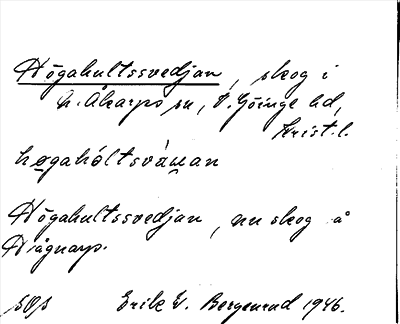 Högahultssvedjan, skog i
N. Åkarps sn, V. Göinge hd,
Krist. l.
høgahóltsváman
Högahultssvedjan, nu skog å
Hågnarp.
Erik V. Bergenrud 1946.